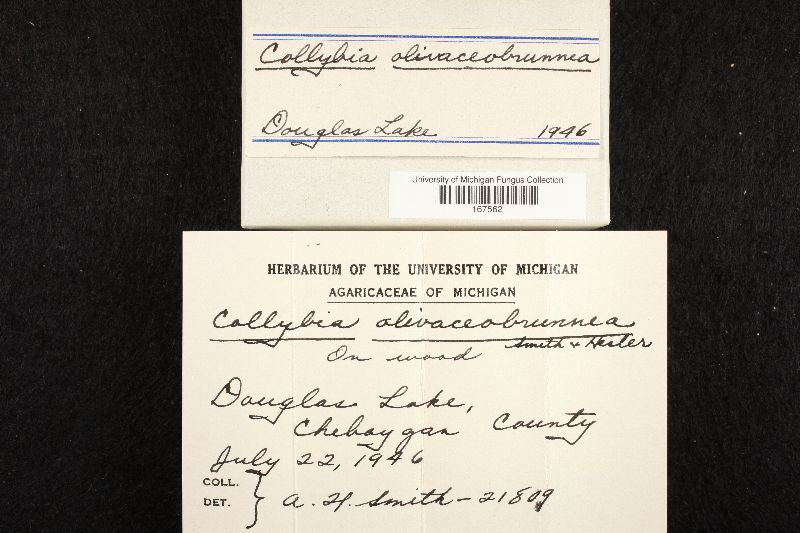 Collybia olivaceobrunnea
Douglas Lake 1946
University of Michigan Fungus Collection
167562
HERBARIUM OF THE UNIVERSITY OF MICHIGAN
AGARICACEAE OF MICHIGAN
Collybia olivaceobrunnea
Smith & Hesler
On wood
Douglas Lake,
Cheboygan County
July 22, 1946
COLL.
DET. } A. H. Smith - 21809